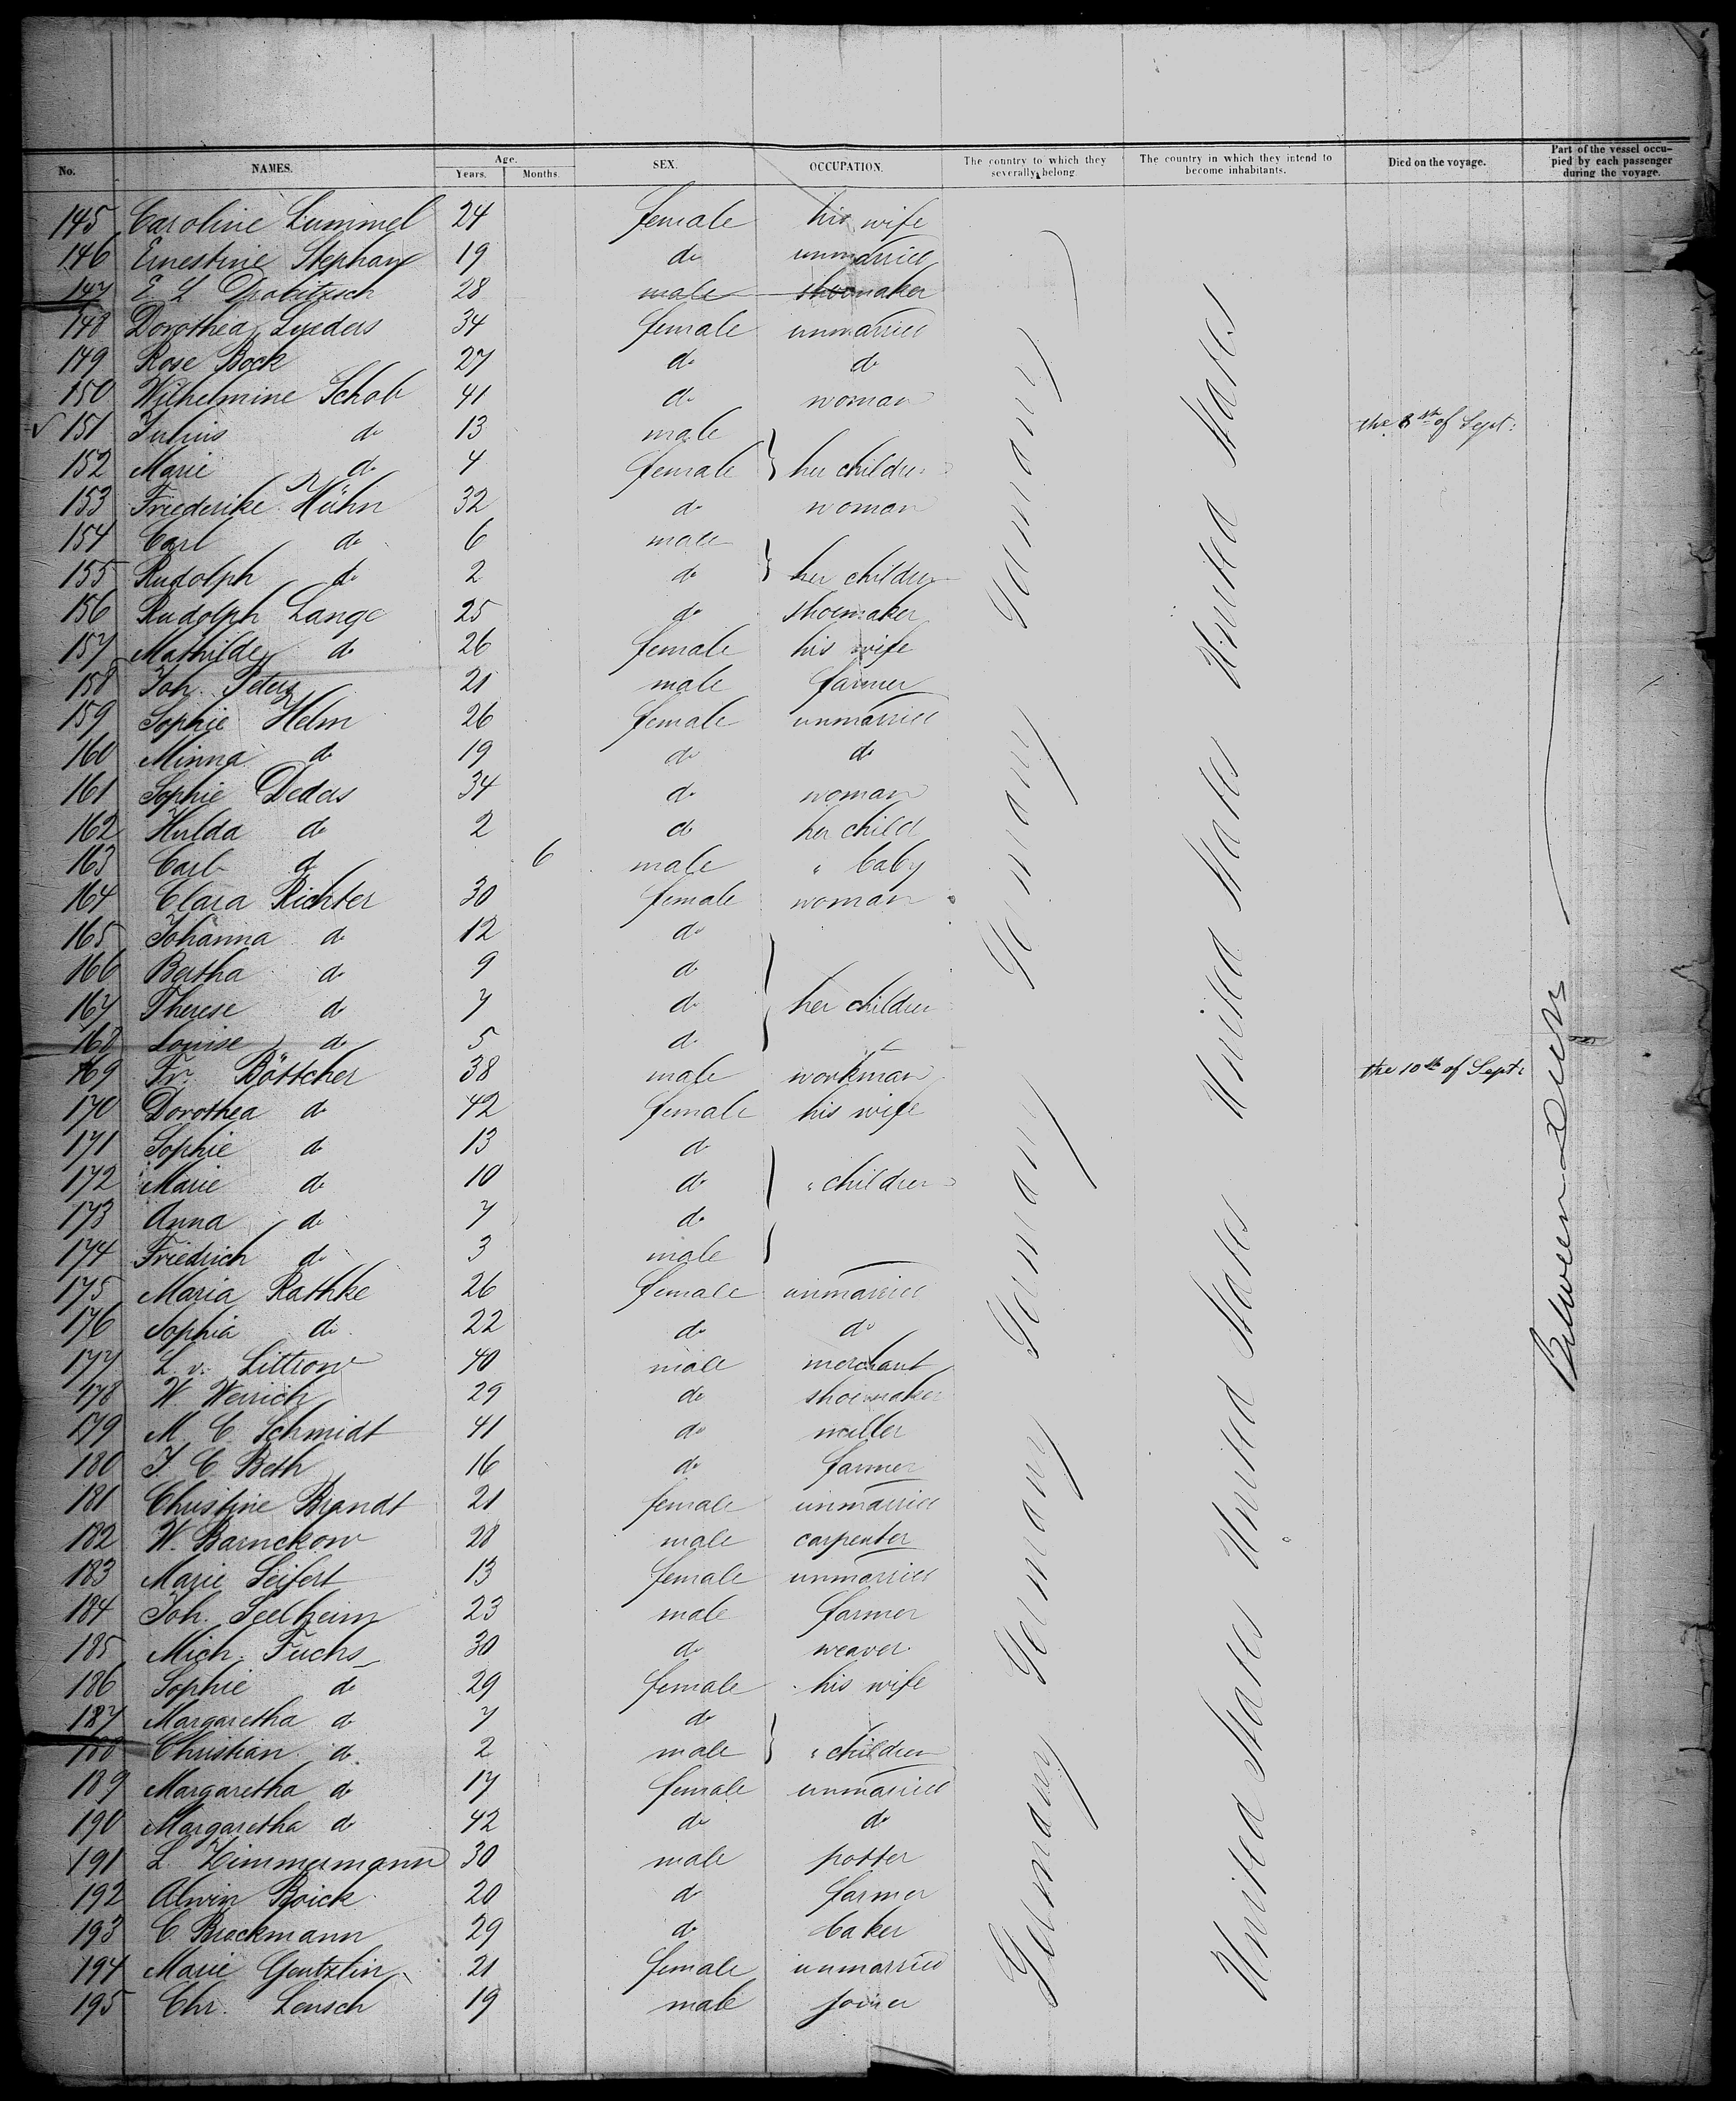 No. NAMES. Age. Years. Months. SEX. OCCUPATION. The country to which they severally belong The country in which they intend to become inhabitants. Died on the voyage. Part of the vessel occupied by each passenger during the voyage.
145 Caroline Lummel 24 female his wife
146 Ernestine Stephan 19 do unmarried
147 E. L. Drobitzsch 28 male shoemaker
148 Dorothea Lueders 34 female unmarried
149 Rose Bock 27 do do
150 Wilhelmine Schob 41 do woman
151 Julius do 13 male the 8th of Sept:
152 Marie do 4 female } her children
153 Friederike Hühn 32 do woman
154 Carl do 6 male
155 Rudolph do 2 do } her children
156 Rudolph Lange 25 do shoemaker
157 Mathilde do 26 female his wife
158 Joh. Peters 21 male farmer
159 Sophie Helm 26 female unmarried
160 Minna do 19 do do
161 Sophie Deders 34 do woman
162 Hulda do 2 do her child
163 Carl do 6 male " baby
164 Clara Richter 30 female woman
165 Johanna do 12 do
166 Bertha do 9 do
167 Therese do 7 do } her children
168 Louise do 5 do
169 Fr. Böttcher 38 male workman the 10th of Sept:
170 Dorothea do 42 female his wife
171 Sophie do 13 do
172 Marie do 10 do } " children
173 Anna do 7 do
174 Friedrich do 3 male
175 Maria Rathke 26 female unmarried
176 Sophia do 22 do do
177 L. v. Littrow 40 male merchant
178 W. Weirich 29 do shoemaker
179 M. C. Schmidt 41 do miller
180 J. C. Beth 16 do farmer
181 Christine Brandt 21 female unmarried
182 W. Barnckow 28 male carpenter
183 Marie Seifert 13 female unmarried
184 Joh. Seelheim 23 male farmer
185 Mich. Fuchs 30 do weaver
186 Sophie do 29 female his wife
187 Margaretha do 7 do
188 Christian do 2 male } " children
189 Margaretha do 17 female unmarried
190 Margaretha do 42 do do
191 L. Zimmermann 30 male potter
192 Alwin Boick 20 do farmer
193 C. Brockmann 29 do baker
194 Marie Gentzlin 21 female unmarried
195 Chr. Lensch 19 male joiner
Germany Germany Germany Germany Germany
United States United States United States United States United States
Between Deck